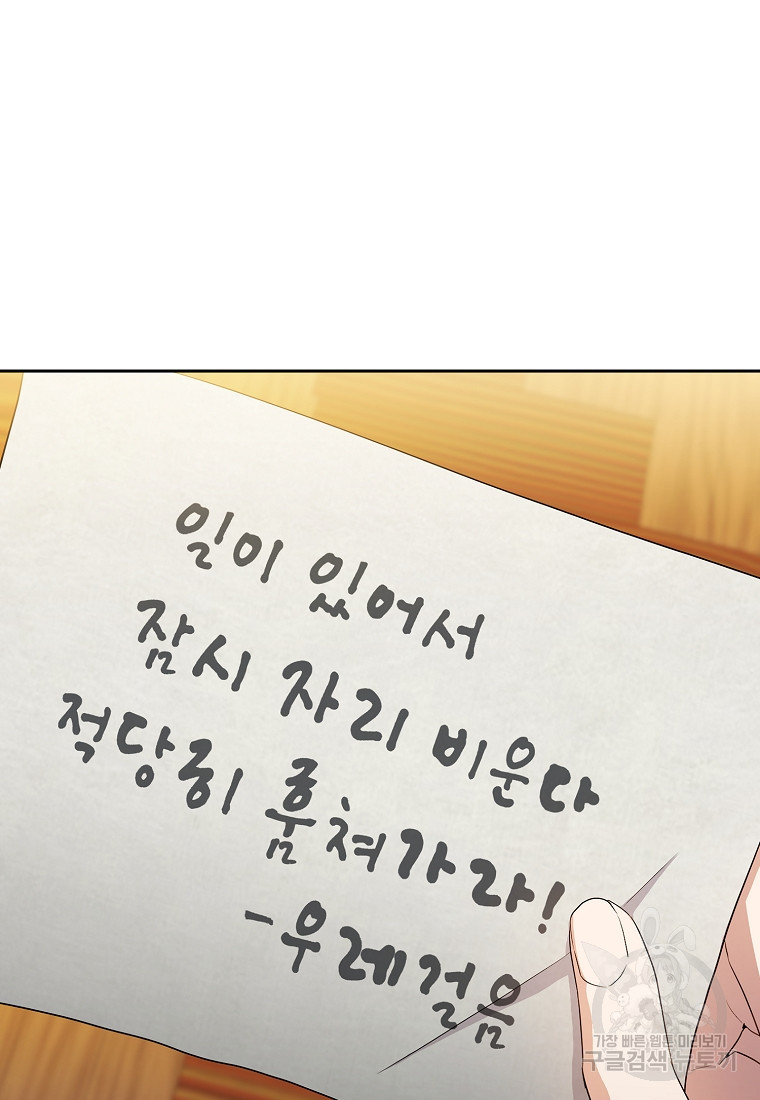 일이 있어서
잠시 자리 비운다
적당히 훔쳐가라!
-우레걸음
가장 빠른 웹툰 미리보기
구글검색 뉴토끼